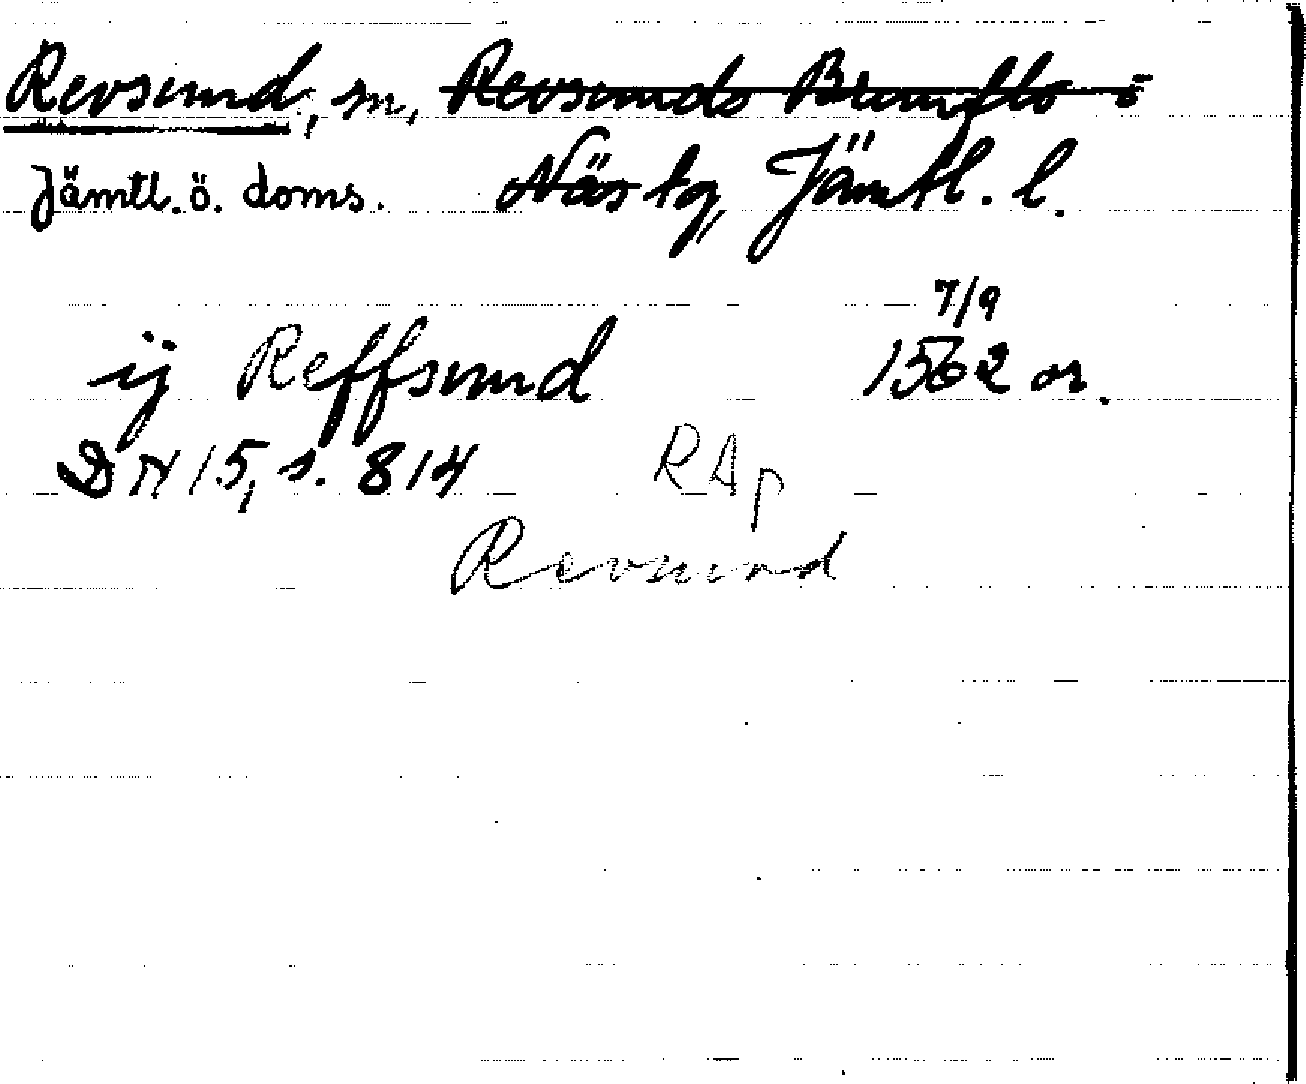 Revsund, sn, Revsunds Brunflo i
Jämtl. ö. doms. Näs tg, Jämtl. l.
7/9
ij Reffsund 1562 or.
DN 15, s. 814 RAp
Revsund